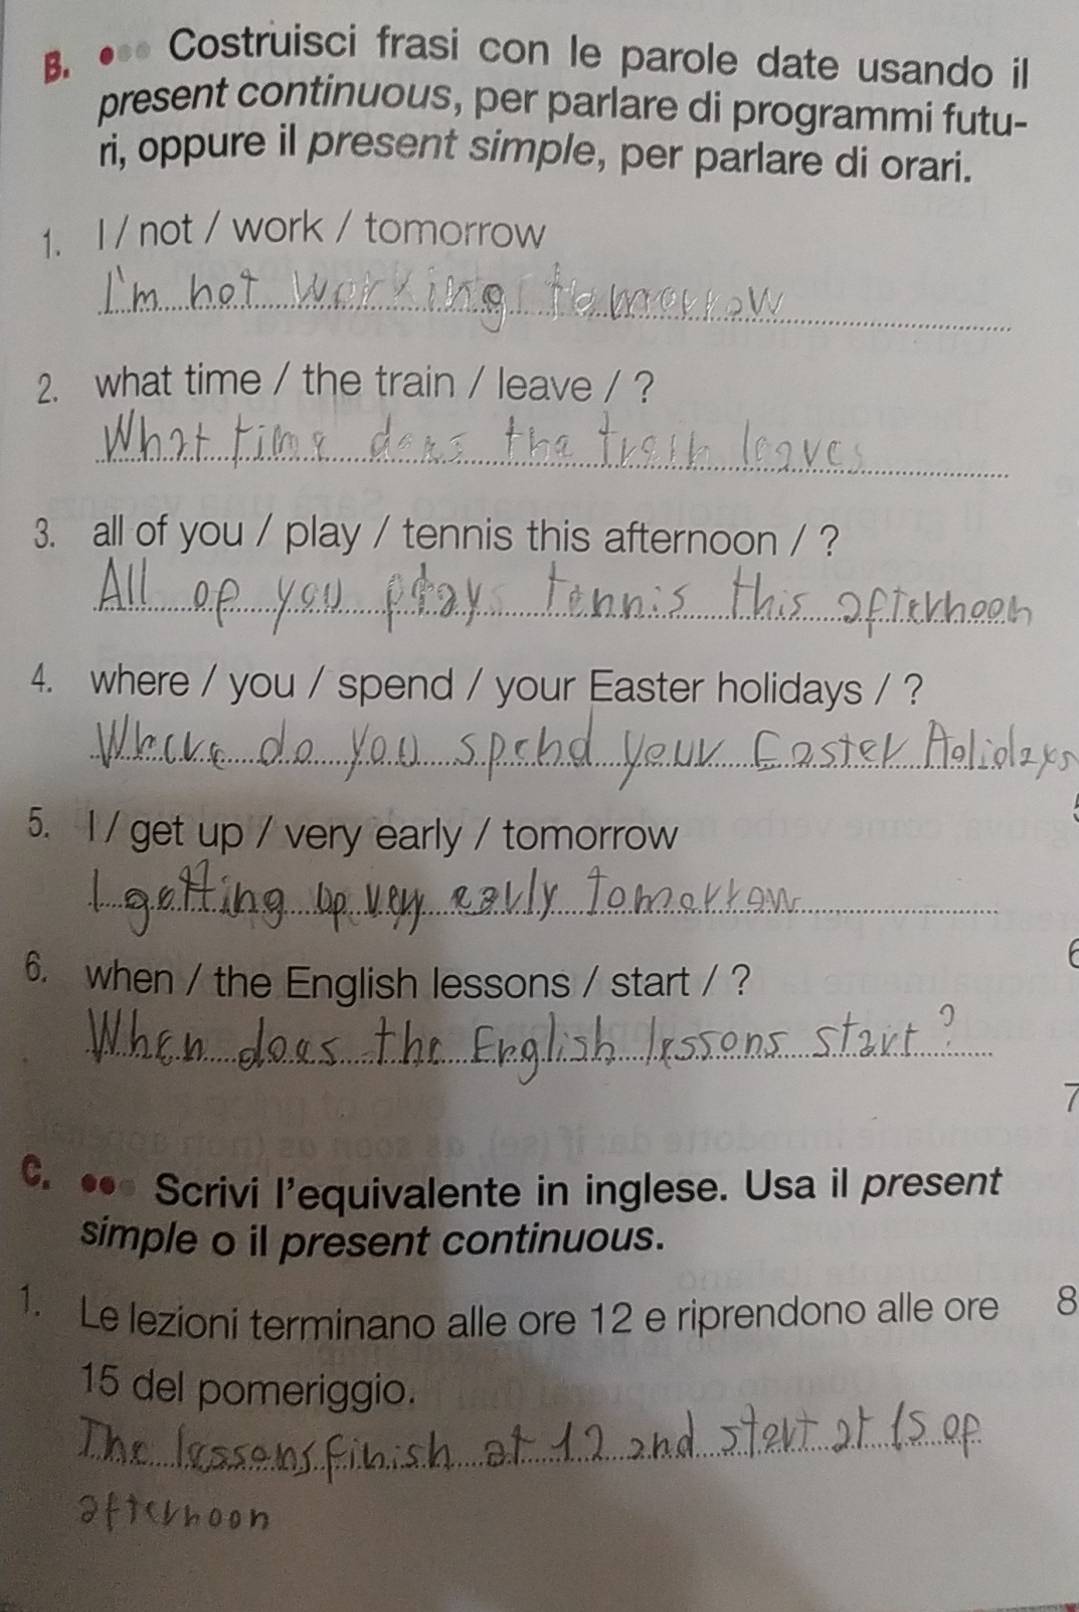 B. Costruisci frasi con le parole date usando il
present continuous, per parlare di programmi futu-
ri, oppure il present simple, per parlare di orari.
1. I / not / work / tomorrow
I'm not working tomorrow
2. what time / the train / leave / ?
What time does the train leaves
3. all of you / play / tennis this afternoon / ?
All of you plays tennis this afternoon
4. where / you / spend / your Easter holidays / ?
Where do you spend your Easter Holidays
5. I / get up / very early / tomorrow
I getting up very early tomorrow
6. when / the English lessons / start / ?
When does the English lessons start?
7
C. Scrivi l'equivalente in inglese. Usa il present
simple o il present continuous.
1. Le lezioni terminano alle ore 12 e riprendono alle ore
8
15 del pomeriggio.
The lessons finish at 12 and start at 15 of
afternoon